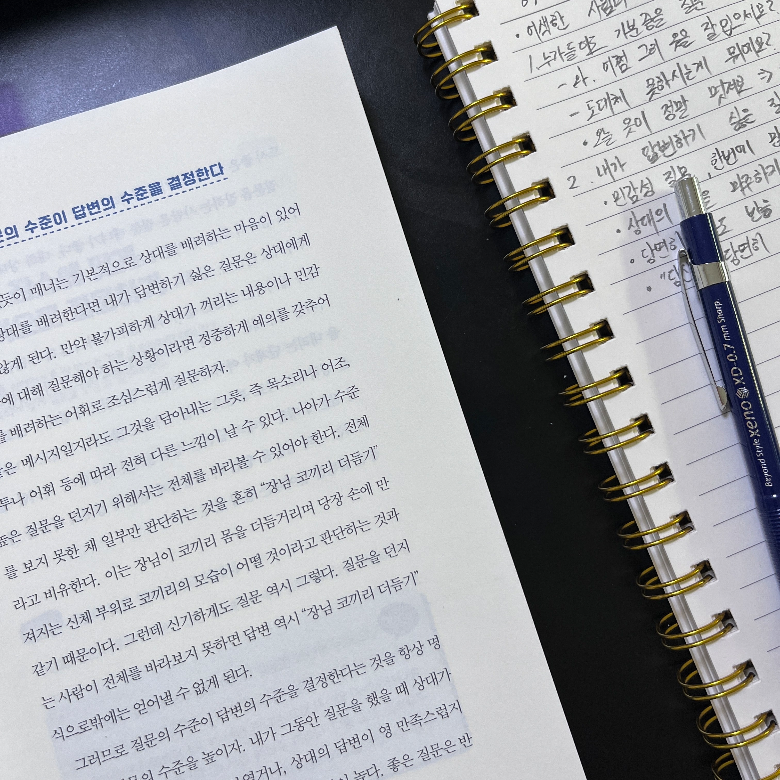 문의 수준이 답변의 수준을 결정한다
듯이 매너는 기본적으로 상대를 배려하는 마음이 있어
상대를 배려한다면 내가 답변하기 싫은 질문은 상대에게
않게 된다. 만약 불가피하게 상대가 꺼리는 내용이나 민감
에 대해 질문해야 하는 상황이라면 정중하게 예의를 갖추어
를 배려하는 어휘로 조심스럽게 질문하자.
은 메시지일지라도 그것을 담아내는 그릇, 즉 목소리나 어조,
투나 어휘 등에 따라 전혀 다른 느낌이 날 수 있다. 나아가 수준
높은 질문을 던지기 위해서는 전체를 바라볼 수 있어야 한다. 전체
를 보지 못한 채 일부만 판단하는 것을 흔히 “장님 코끼리 더듬기”
라고 비유한다. 이는 장님이 코끼리 몸을 더듬거리며 당장 손에 만
져지는 신체 부위로 코끼리의 모습이 어떨 것이라고 판단하는 것과
같기 때문이다. 그런데 신기하게도 질문 역시 그렇다. 질문을 던지
는 사람이 전체를 바라보지 못하면 답변 역시 “장님 코끼리 더듬기”
식으로밖에는 얻어낼 수 없게 된다.
그러므로 질문의 수준이 답변의 수준을 결정한다는 것을 항상 명
문의 수준을 높이자. 내가 그동안 질문을 했을 때 상대가
였거나, 상대의 답변이 영 만족스럽지
높다. 좋은 질문은 반
• 어색한
1. 누가들어도 기분좋을 질문
- 와. 어쩜 그리 옷을 잘 입으세요?
- 도대체 못하시는게 뭐예요?
• 오늘 옷이 정말 멋져요
2. 내가 답변하기 싫은 질
• 민감성 질문, 한번에
• 상대의
• 당연히
당연히
Beyond Style xeno XD-0.7 mm Sharp